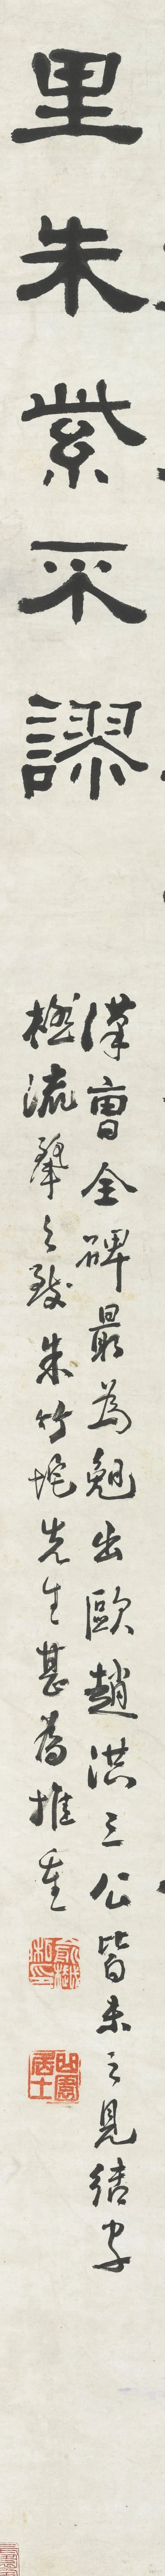 里朱紫不謬
漢曹全碑最為晚出歐趙洪三公皆未之見結字
極流之致朱竹垞先生甚為推重